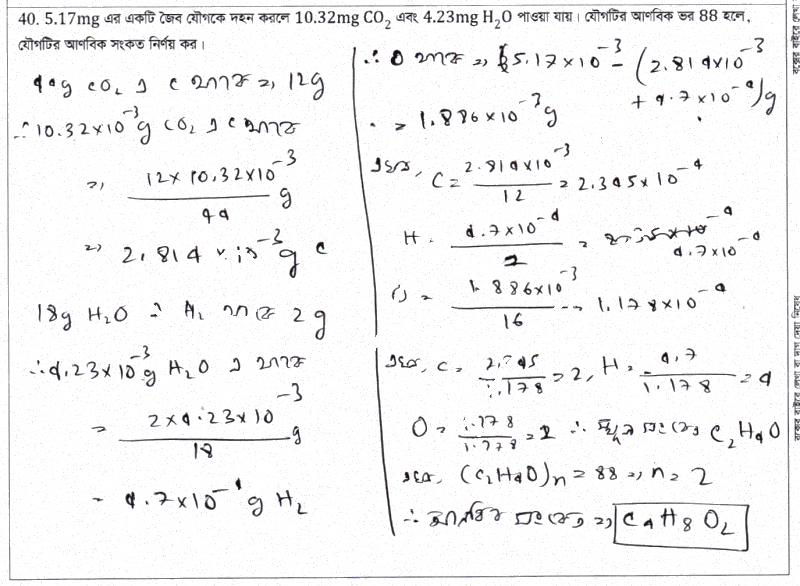 40. 5.17mg এর একটি জৈব যৌগকে দহন করলে 10.32mg CO₂ এবং 4.23mg H₂O পাওয়া যায়। যৌগটির আণবিক ভর 88 হলে,
যৌগটির আণবিক সংকেত নির্ণয় কর।
44g CO₂ এ C থাকে ⇒ 12g
∴ 10.32×10⁻³g CO₂ এ C থাকে
⇒ 12×10.32×10⁻³ / 44 g
⇒ 2.814×10⁻³g C
18g H₂O এ H₂ থাকে 2g
∴ 4.23×10⁻³g H₂O এ থাকে
= 2×4.23×10⁻³ / 18 g
= 4.7×10⁻⁴g H₂
∴ O থাকে ⇒ 5.17×10⁻³ − (2.814×10⁻³
+ 4.7×10⁻⁴)g
⇒ 1.886×10⁻³g
এখন, C = 2.814×10⁻³ / 12 = 2.345×10⁻⁴
H = 4.7×10⁻⁴ / = 4.7×10⁻⁴
O = 1.886×10⁻³ / 16 = 1.178×10⁻⁴
এখন, C = 2.345 / 1.178 = 2, H = 4.7 / 1.178 = 4
O = 1.178 / 1.178 = 1 ∴ স্থূল সংকেত C₂H₄O
এখন, (C₂H₄O)n = 88 ⇒ n = 2
∴ আণবিক সংকেত ⇒ C₄H₈O₂